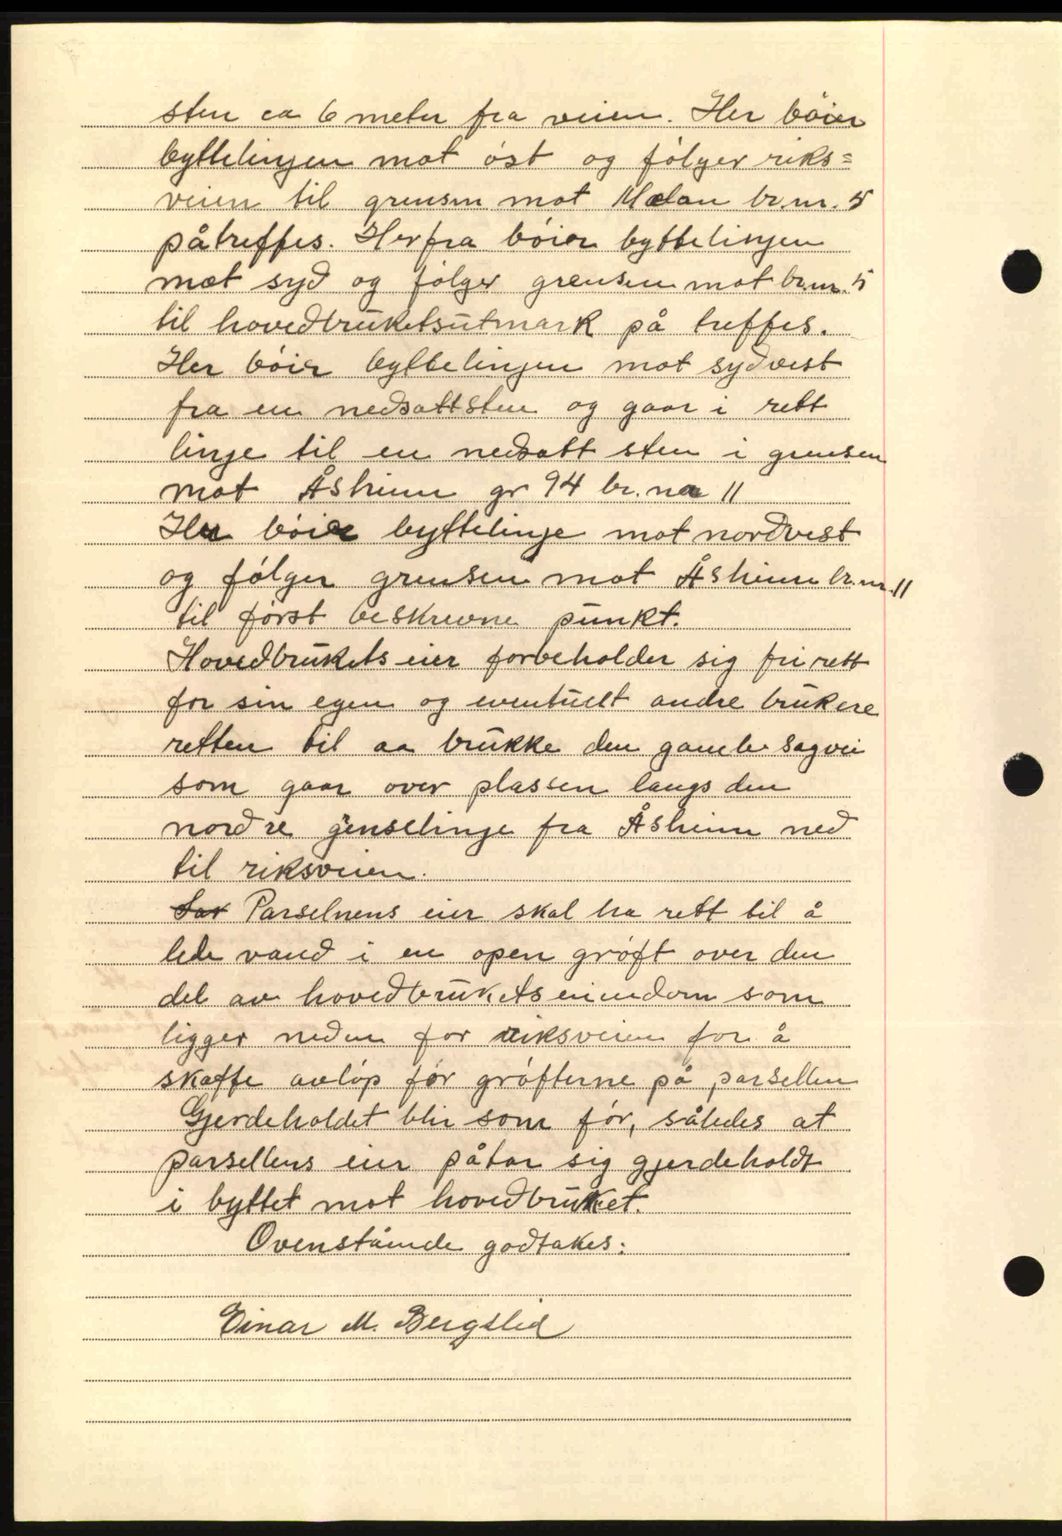 sten ca 6 meter fra veien. Her bóier
byttelinjen mot óst og fólger riks=
veien til grensen mot Melan br.nr. 5
påtreffes. Herfra bóier byttelinjen
mot syd og fólger grensen mot br.nr. 5
til hovedbruketsutmark på treffes.
Her bóier byttelinjen mot sydvest
fra en nedsattsten og gaar i rett
linje til en nedsatt sten i grensen
mot Åsheim gr 94 br. nr 11
Her bóier byttelinje mot nordvest
og fólger grensen mot Åsheim br.nr. 11
til fórst beskrevne punkt.
Hovedbrukets eier forbeholder sig fri rett
for sin egen og eventuelt andre brukere
retten til aa brukke den gamle sagvei
som gaar over plassen langs den
nordre genselinje fra Åsheim ned
til riksveien.
Parselnens eier skal ha rett til å
lede vand i en open gróft over den
del av hovedbrukets eiendom som
ligger neden for riksveien for å
skaffe avlóp fór grófterne på parsellen
Gjerdeholdet blir som fór, således at
parsellens eier påtar sig gjerdeholdt
i byttet mot hovedbruket.
Ovenstående godtakes:
Einar M. Bergslid